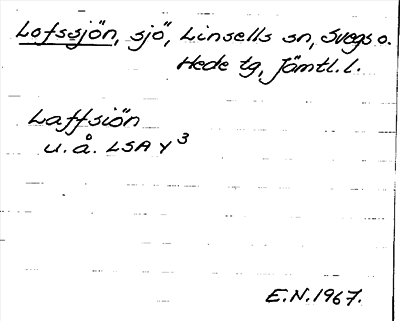 Lofssjön, sjö, Linsells sn, Svegs o.
Hede tg, Jämtl. l.
Laffsiön
u. å. LSA Y 3
E.N. 1967.